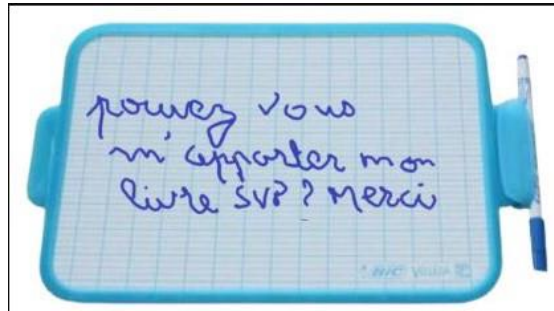 pouvez vous
m'apporter mon
livre SVP ? Merci
BIC Velleda